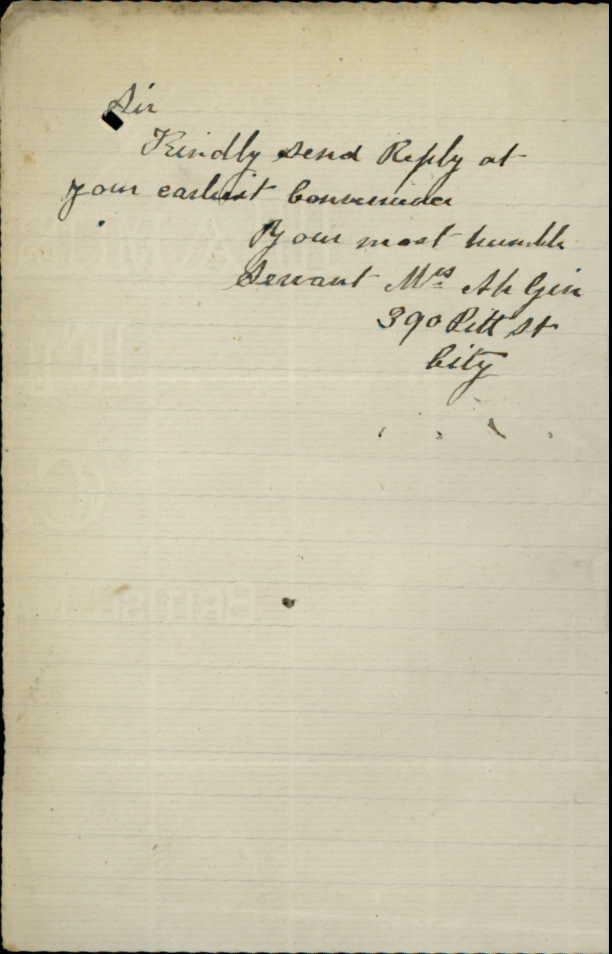 Sir
Kindly send Reply at
your earliest Convenience
Your most humble
Servant Mrs Ah Gin
390 Pitt St
City